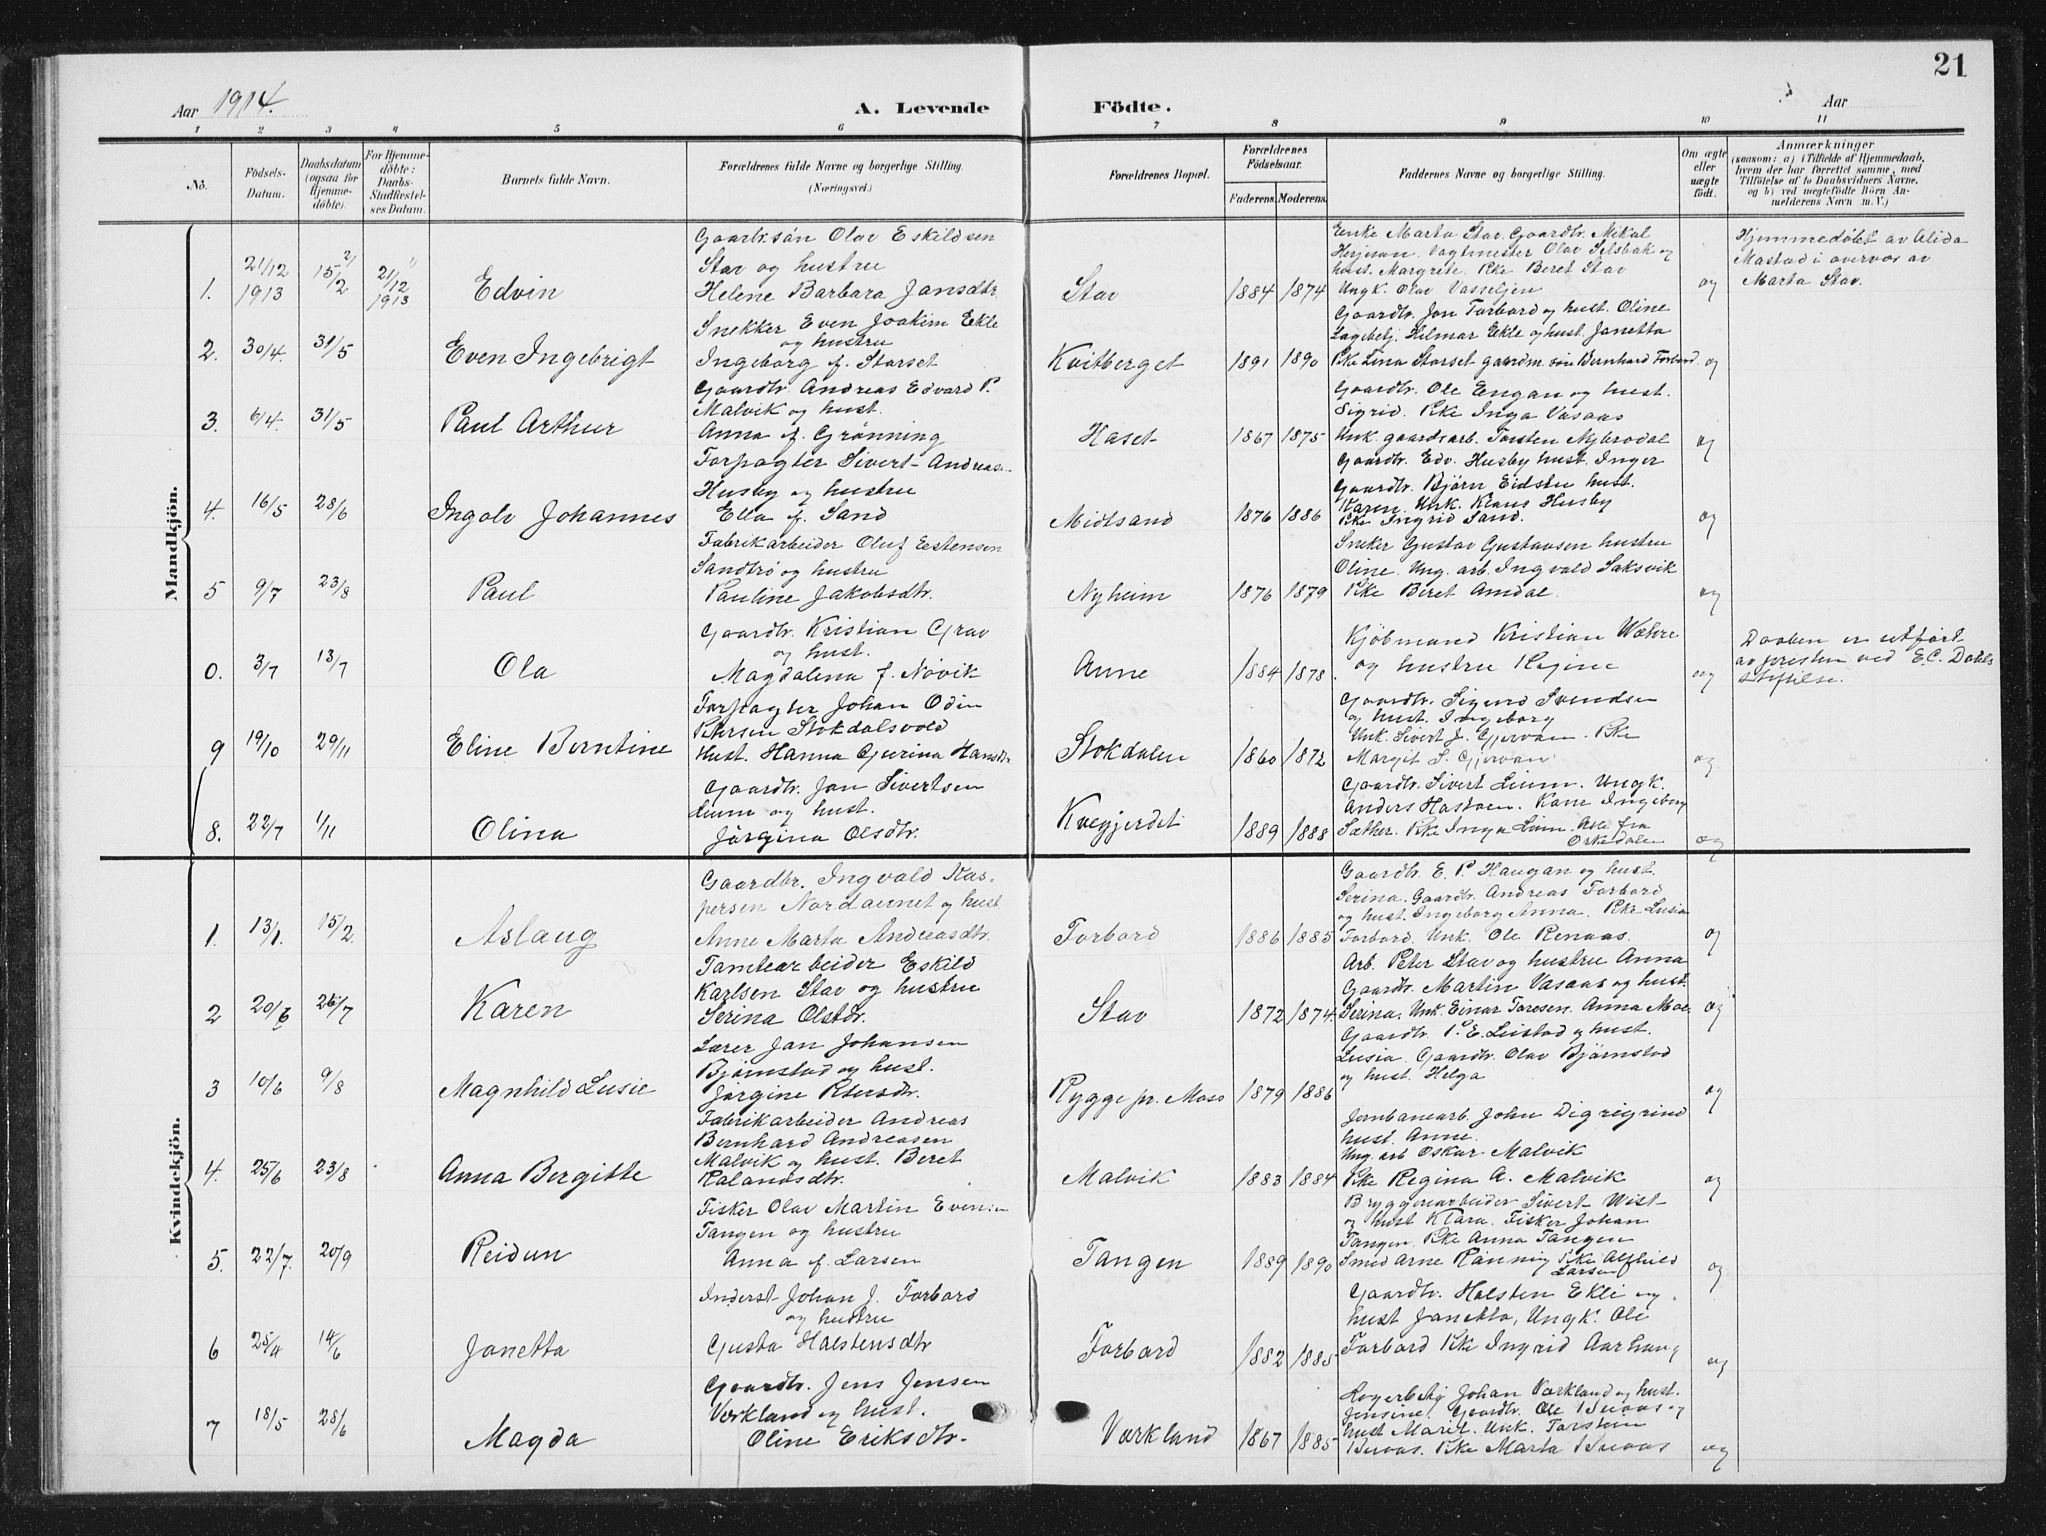 21
Aar 1914.
A. Levende Födte.
Aar
1 2 3 4 5 6 7 8 9 10 11
No.
Födsels-Datum.
Daabsdatum (ogsaa for Hjemmedöbte).
For Hjemmedöbte: Daabs-Stadfæstelses Datum.
Barnets fulde Navn.
Forældrenes fulde Navne og borgerlige Stilling. (Næringsvei.)
Forældrenes Bopæl.
Forældrenes Födselsaar.
Faderens. Moderens.
Faddernes Navne og borgerlige Stilling.
Om ægte eller uægte födt.
Anmærkninger
(saasom: a) i Tilfælde af Hjemmedaab,
hvem der har forrettet samme, med
Tilföielse af to Daabsvidners Navne,
og b) ved uægtefödte Börn An-
melderens Navn m. V.)
Mandkjön.
1. 21/12 1913 15/2 21/12 1913 Edvin
Gaardsøn Olav Eskildsen
Stav og hustru
Helene Barbara Jansdtr.
Stav 1884 1874
Enke Marta Stav Gaardbr. Mikal
Vagtmester Olav Selsbak og
hust. Margrete. Pke Beret Stav
Ungk. Olav Vasseljen
og
Hjemmedøbt av Alida
Mastad i overvær av
Marta Stav.
2. 30/4. 31/5 Even Ingebrigt
Snekker Even Joakim Ekle
og hustru
Ingeborg f. Storset
Kvitberget 1891 1890
Gaardbr. Jon Forbord og hust. Oline
Lagbetj. Helmar Ekle og hust. Janetta
Pke Lina Storset gaardm. søn Bernhard Forbord
og
3. 6/4. 31/5 Paul Arthur
Gaardbr. Andreas Edvard P.
Malvik og hust.
Anna f. Grønning
Haset 1867 1875
Gaardbr. Ole Engan og hust.
Sigrid. Pke Inga Vasaas
Unk. gaardsarb. Torsten Nybrodal
og
4. 16/5 28/6 Ingolv Johannes
Forpagter Sivert Andreas
Husby og hustru
Ella f. Sand
Midtsand 1876 1886
Gaardbr. Edv. Husby hust. Inger
Gaardbr. Bjørn Eidstu hust.
Karen. Unk. Klaus Husby
Pke Ingrid Sand.
og
5 9/7 23/8 Paul
Fabrikarbeider Oluf Estensen
Sandtrø og hustru
Pauline Jakobsdtr.
Nyheim 1876 1879
Sneker Gustav Gustavsen hustru
Oline. Ung. arb. Ingvald Saksvik
Pke Beret Amdal.
og
0. 3/7 13/7 Ola
Gaardbr. Kristian Grav
og hust.
Magdalena f. Nøvik
Anne 1884 1878
Kjöbmand Kristian Wætre
og hustru Regine
og
Daaben er utført
av presten ved E.C. Dahls
Stiftelse.
9 19/10 29/11 Eline Berntine
Forpagter Johan Odin
Petersen Stokdalsvold
Hust. Hanna Gurina Hansdtr
Stokdalen 1860 1872
Gaardbr. Sigurd Svendsen
og hust. Ingeborg
Unk. Sivert J. Gjervan. Pke
Margit S. Gjervan
og
8. 22/7 1/11 Olina
Gaardbr. Jan Sivertsen
Leium og hust.
Jørgina Olsdtr.
Kvegjerdet 1889 1888
Gaardbr. Sivert Leium. Ungk.
Anders Hastoen. Kone Ingeborg
Sæther. Pke Inga Leium. Alle fra
Orkedalen
og
Kvindekjön.
1. 13/1. 15/2. Aslaug
Gaardbr. Ingvald Kas-
persen Nordaunet og hust
Anne Marta Andreasdtr.
Forbord 1886 1885
Gaardbr. E. P. Haugan og hust.
Serina. Gaardbr. Andreas Forbord
og hust. Ingeborg Anna. Pke Lusia
Forbord. Unk. Ole Renaas.
og
2 20/6 26/7 Karen
Tomtearbeider Eskild
Karlsen Stav og hustru
Serina Olsdtr.
Stav 1872 1874
Arb. Peter Stav og hustru Anna
Gaardbr. Martin Vasaas og hust.
Serina. Unk. Einar Toresen. Anna Moe
og
3 10/6 9/8 Magnhild Lusie
Lærer Jan Johansen
Bjørnstad og hust.
Jørgine Petersdtr.
Rygge pr. Moss 1879 1886
Gaardbr. P. E. Leistad og hust.
Lusia. Gaardbr. Olav Bjørnstad
og hust. Helga
og
4. 25/6 23/8 Anna Bergitte
Fabrikarbeider Andreas
Bernhard Andreasen
Malvik og hust. Beret
Ralandsdtr.
Malvik 1883 1884
Jernbanearb. John Digregrind
hust. Anne.
Ung. arb Oskar Malvik
Pke Regina A. Malvik
og
5. 22/7. 20/9 Reidun
Fisker Olav Martin Evensen
Tangen og hustru
Anna f. Larsen
Tangen 1889 1890
Bryggeriarbeider Sivert Wist
og hust Klara. Fisker Johan
Tangen. Pke Anna Tangen
Smed Arne Rønning Pke Alfhild
Larsen
og
6 25/4 14/6 Janetta
Inderst Johan J. Forbord
og hustru
Gusta Halstensdtr
Forbord 1882 1885
Gaardbr. Halsten Ekle og
hust Janetta, Ungk. Ole
Forbord Pke Ingrid Aarhaug
og
7 18/5 28/6 Magda
Gaardbr. Jens Jensen
Værkland og hust.
Oline Eriksdtr.
Værkland 1867 1885
Johan Værkland og hust.
Jensine. Gaardbr. Ole Buaas og
hust Marit. Unk. Torstein
Buaas. Pke Marta Buaas
og